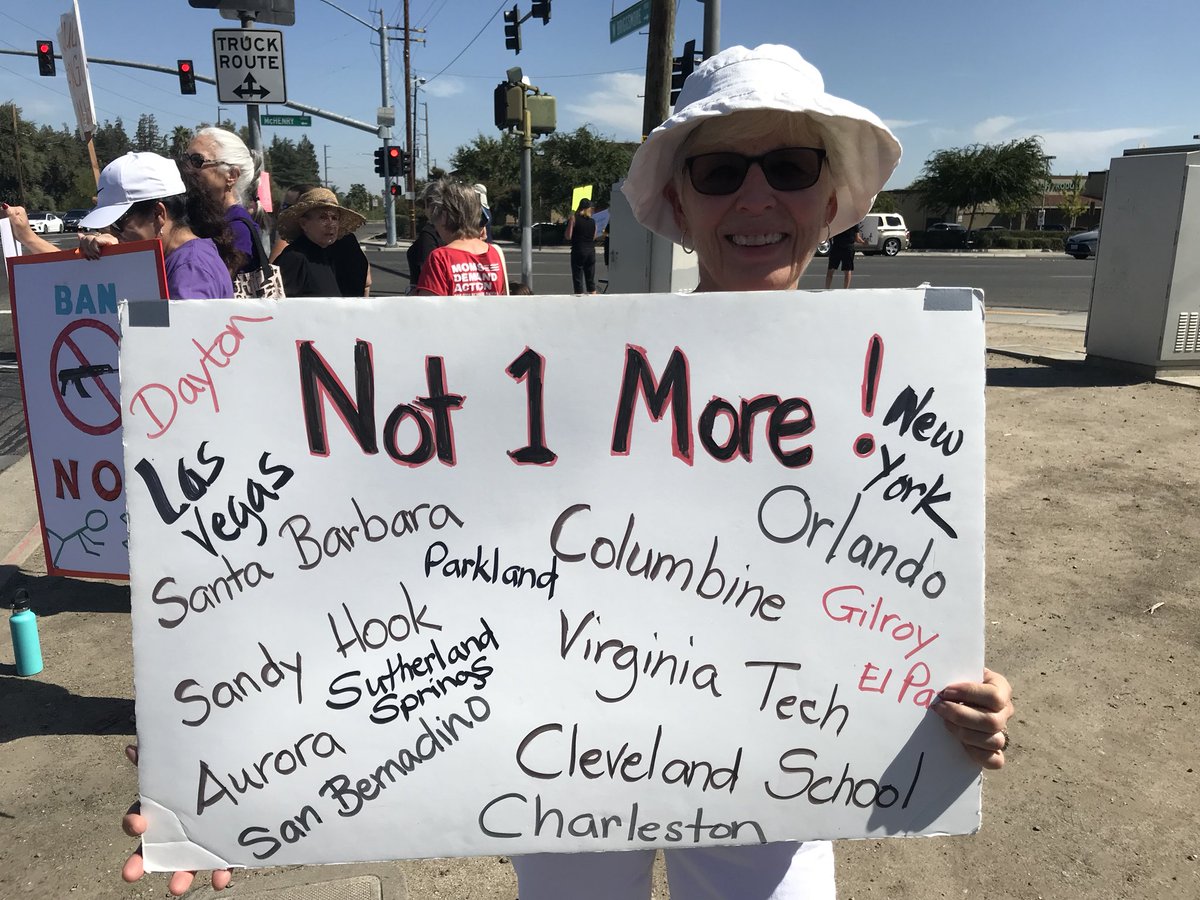 TRUCK
ROUTE
McHENRY
MOMS
DEMAND
ACTION
BAN
NO
Not 1 More!
Dayton
Las
Vegas
New
York
Santa Barbara
Parkland
Columbine
Orlando
Sandy Hook
Sutherland
Springs
Virginia Tech
Gilroy
El Pa
Aurora
San Bernadino
Cleveland School
Charleston